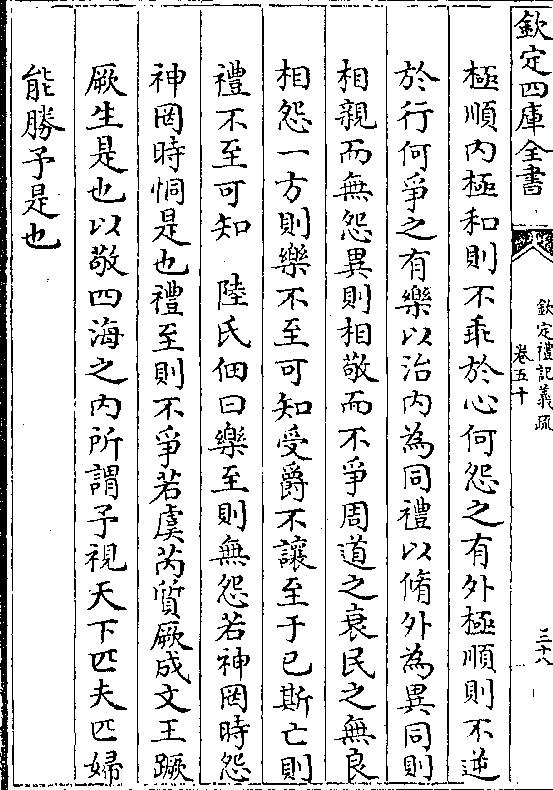 欽定四庫全書
欽定禮記義疏
卷五十
三十八
極順內極和則不乖於心何怨之有外極順則不逆
於行何爭之有樂以治內為同禮以脩外為異同則
相親而無怨異則相敬而不爭周道之衰民之無良
相怨一方則樂不至可知受爵不讓至于已斯亡則
禮不至可知　陸氏佃曰樂至則無怨若神罔時怨
神罔時恫是也禮至則不爭若虞芮質厥成文王蹶
厥生是也以敬四海之內所謂予視天下匹夫匹婦
能勝予是也